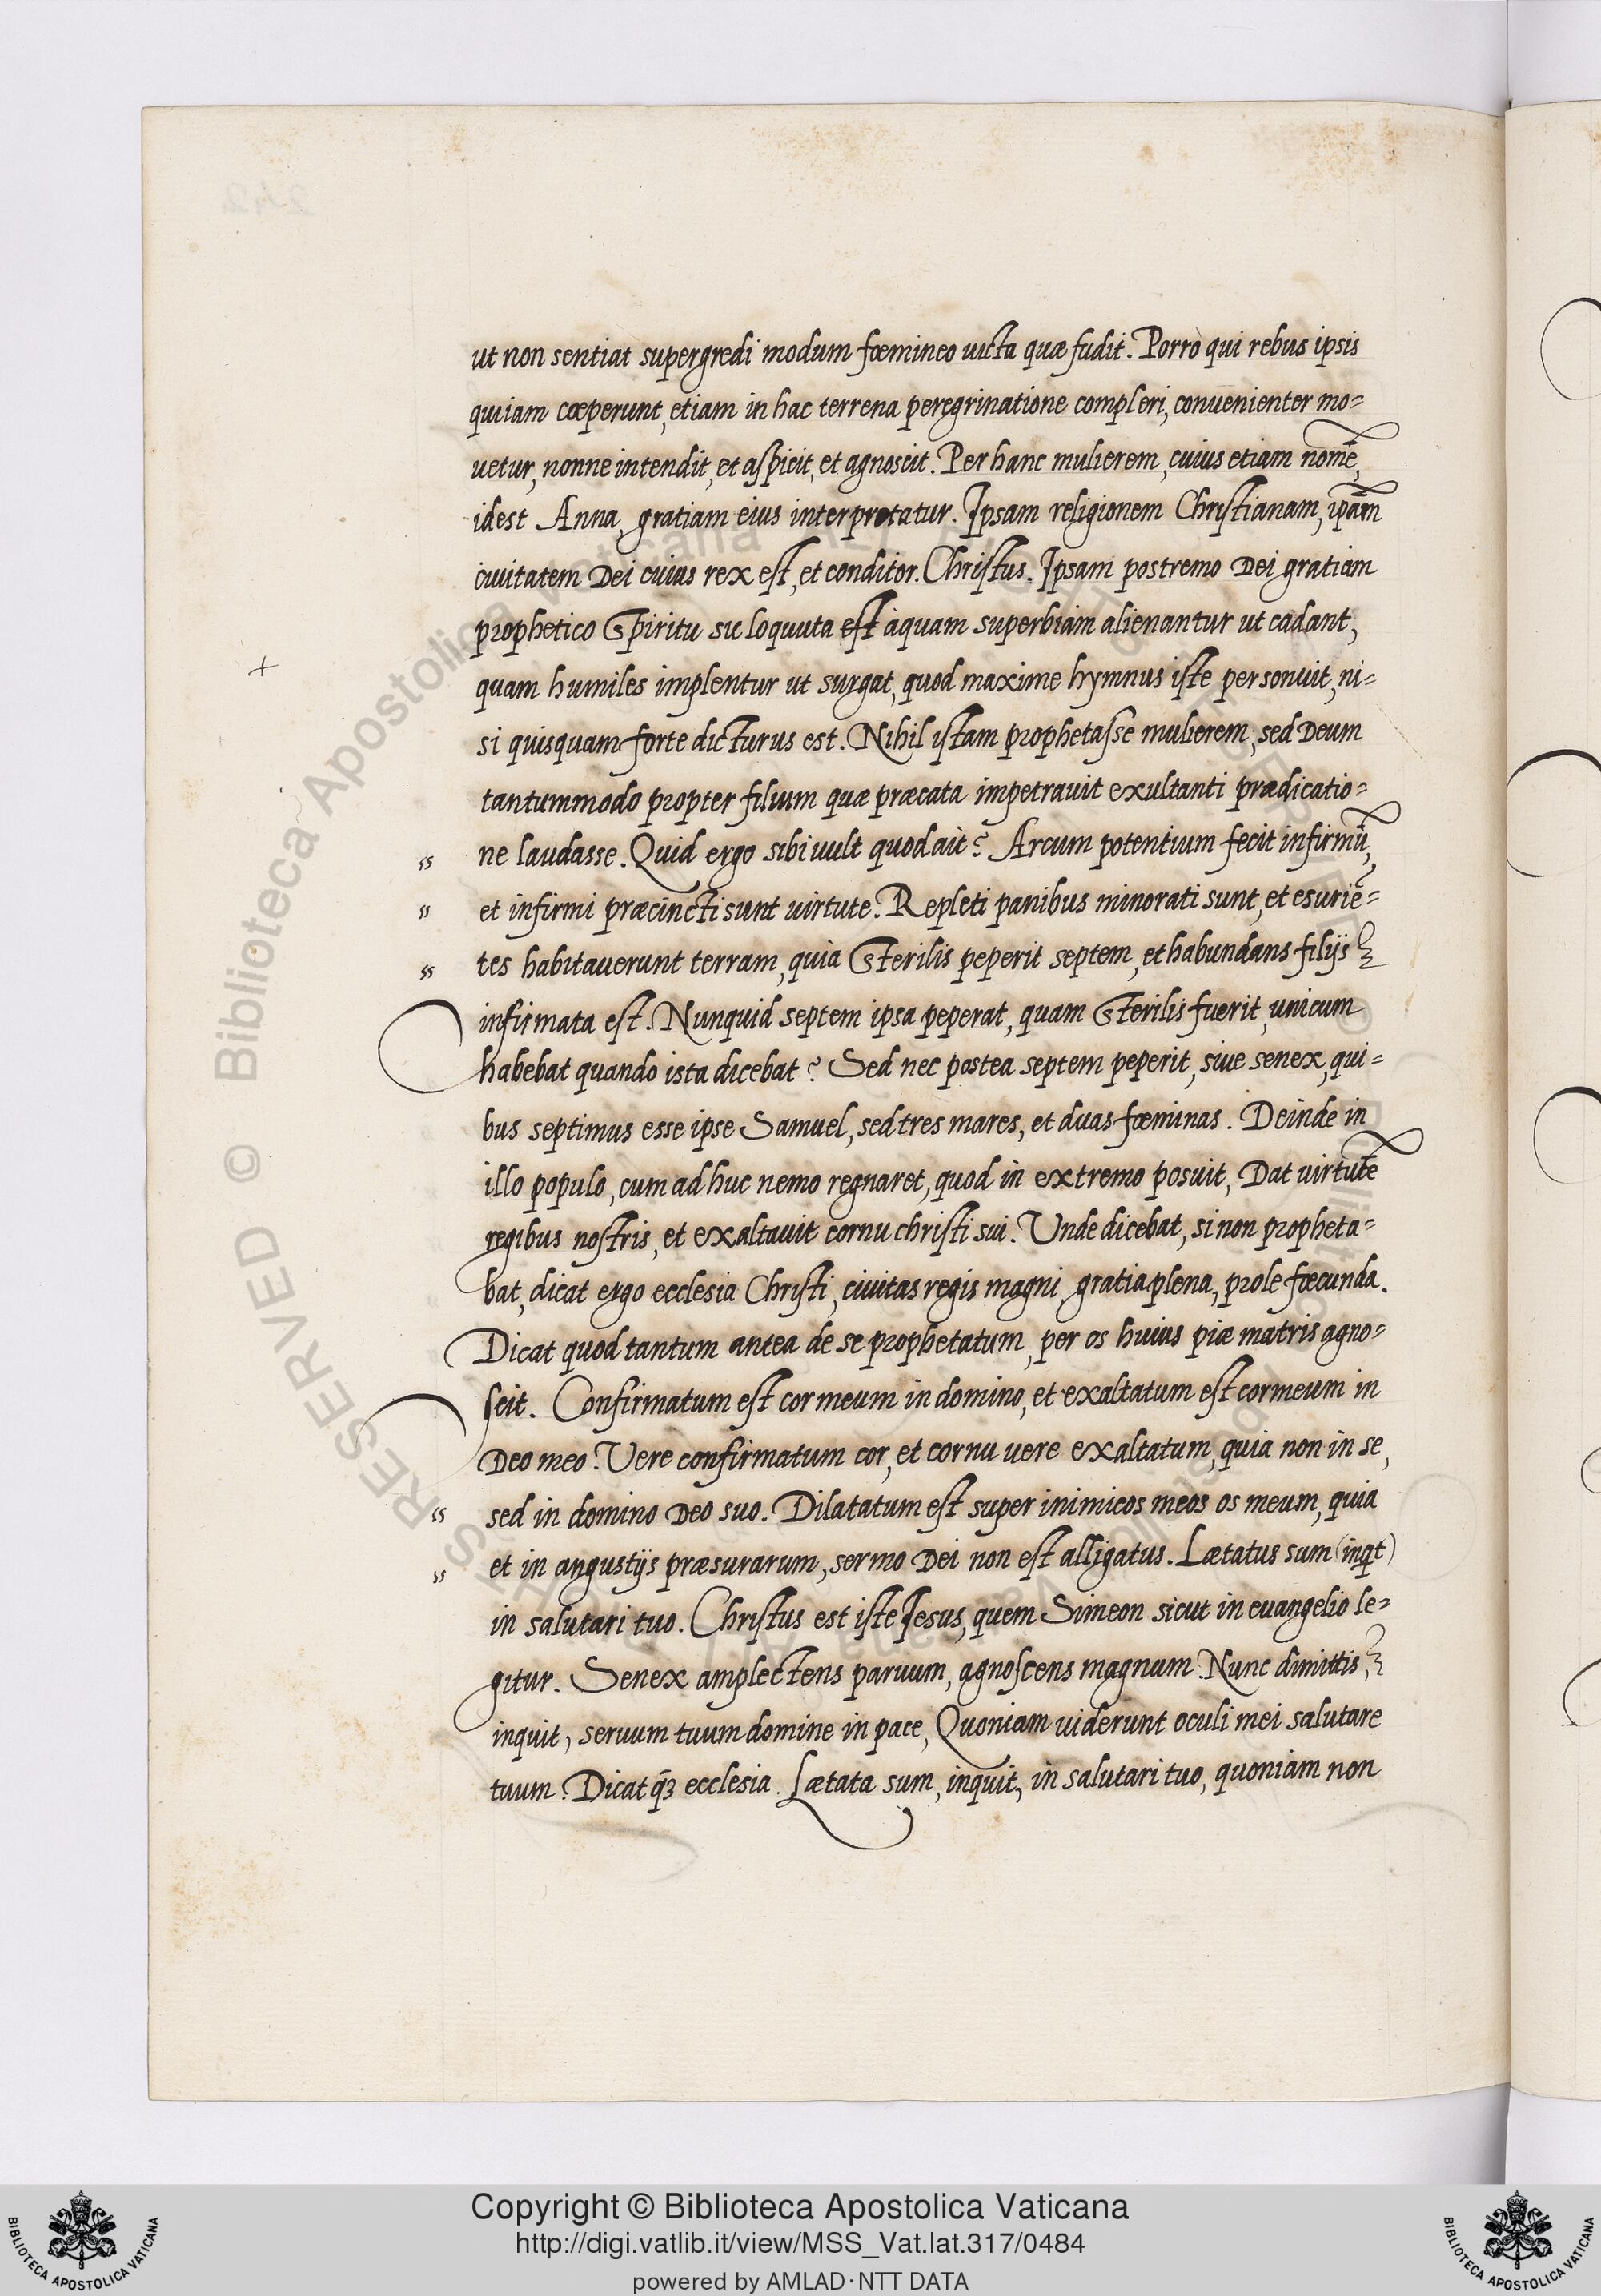 ut non sentiat supergredi modum fœmineo uicta quæ fudit. Porrò qui rebus ipsis
quiam cœperunt, etiam in hac terrena peregrinatione compleri, conuenienter mo=
uetur, nonne intendit, et aspicit, et agnoscit. Per hanc mulierem, cuius etiam nomē,
idest Anna, gratiam eius interpretatur. Ipsam religionem Christianam, ipām
ciuitatem Dei cuius rex est, et conditor. Christus. Ipsam postremo Dei gratiam
prophetico Spiritu sic loquuta est àquam superbiam alienantur ut cadant,
quam humiles implentur ut surgat, quod maxime hymnus iste personuit, ni=
si quisquam forte dicturus est. Nihil istam prophetasse mulierem, sed Deum
tantummodo propter filium quæ præcata impetrauit exultanti prædicatio=
ne laudasse. Quid ergo sibi uult quod ait? Arcum potentium fecit infirmū,
et infirmi præcincti sunt uirtute. Repleti panibus minorati sunt, et esuriē=
tes habitauerunt terram, quia Sterilis peperit septem, et habundans filijs
infirmata est. Nunquid septem ipsa peperat, quam Sterilis fuerit, unicum
habebat quando ista dicebat? Sed nec postea septem peperit, siue senex, qui=
bus septimus esse ipse Samuel, sed tres mares, et duas fœminas. Deinde in
illo populo, cum ad huc nemo regnaret, quod in extremo posuit, Dat uirtutē
regibus nostris, et exaltauit cornu christi sui. Unde dicebat, si non propheta=
bat, dicat ergo ecclesia Christi, ciuitas regis magni, gratia plena, prole fœcunda.
Dicat quod tantum antea de se prophetatum, per os huius piæ matris agno=
scit. Confirmatum est cor meum in domino, et exaltatum est cor meum in
Deo meo. Vere confirmatum cor, et cornu uere exaltatum, quia non in se,
sed in domino Deo suo. Dilatatum est super inimicos meos os meum, quia
et in angustijs præsurarum, sermo Dei non est alligatus. Lætatus sum (inqt)
in salutari tuo. Christus est iste Jesus, quem Simeon sicut in euangelio le=
gitur. Senex amplectens paruum, agnoscens magnum. Nunc dimittis,
inquit, seruum tuum domine in pace, Quoniam uiderunt oculi mei salutare
tuum. Dicat q̄ꝫ ecclesia. Lætata sum, inquit, in salutari tuo, quoniam non
Copyright © Biblioteca Apostolica Vaticana
http://digi.vatlib.it/view/MSS_Vat.lat.317/0484
powered by AMLAD·NTT DATA